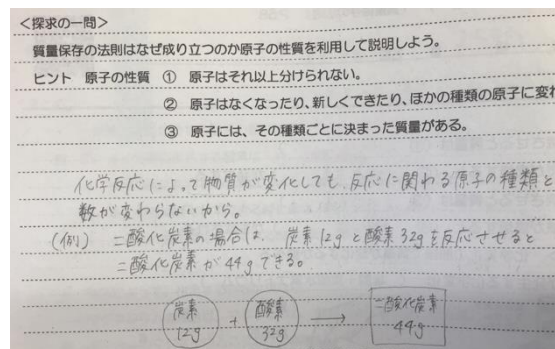 <探求の一問>
質量保存の法則はなぜ成り立つのか原子の性質を利用して説明しよう。
ヒント 原子の性質 ① 原子はそれ以上分けられない。
② 原子はなくなったり、新しくできたり、ほかの種類の原子に変わ
③ 原子には、その種類ごとに決まった質量がある。
化学反応によって物質が変化しても、反応に関わる原子の種類と
数が変わらないから。
(例) 二酸化炭素の場合は、炭素12gと酸素32gを反応させると
二酸化炭素が44gできる。
炭素 酸素 二酸化炭素
12g + 32g → 44g